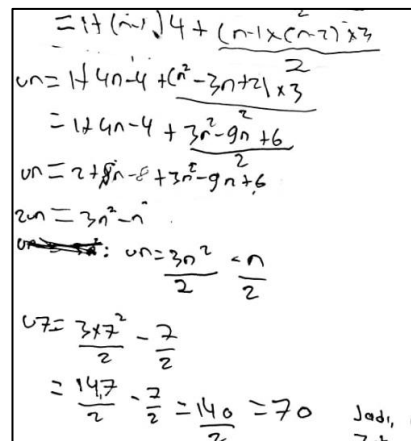 = 1 + (n-1) 4 + (n-1)×(n-2) × 3 / 2
Un = 1 + 4n - 4 + (n² - 3n + 2) × 3 / 2
= 1 + 4n - 4 + 3n² - 9n + 6 / 2
Un = 2 + 8n - 8 + 3n² - 9n + 6
2Un = 3n² - n
: Un = 3n² / 2 - n / 2
U7 = 3×7² / 2 - 7 / 2
= 147 / 2 - 7 / 2 = 140 / 2 = 70 Jadi,